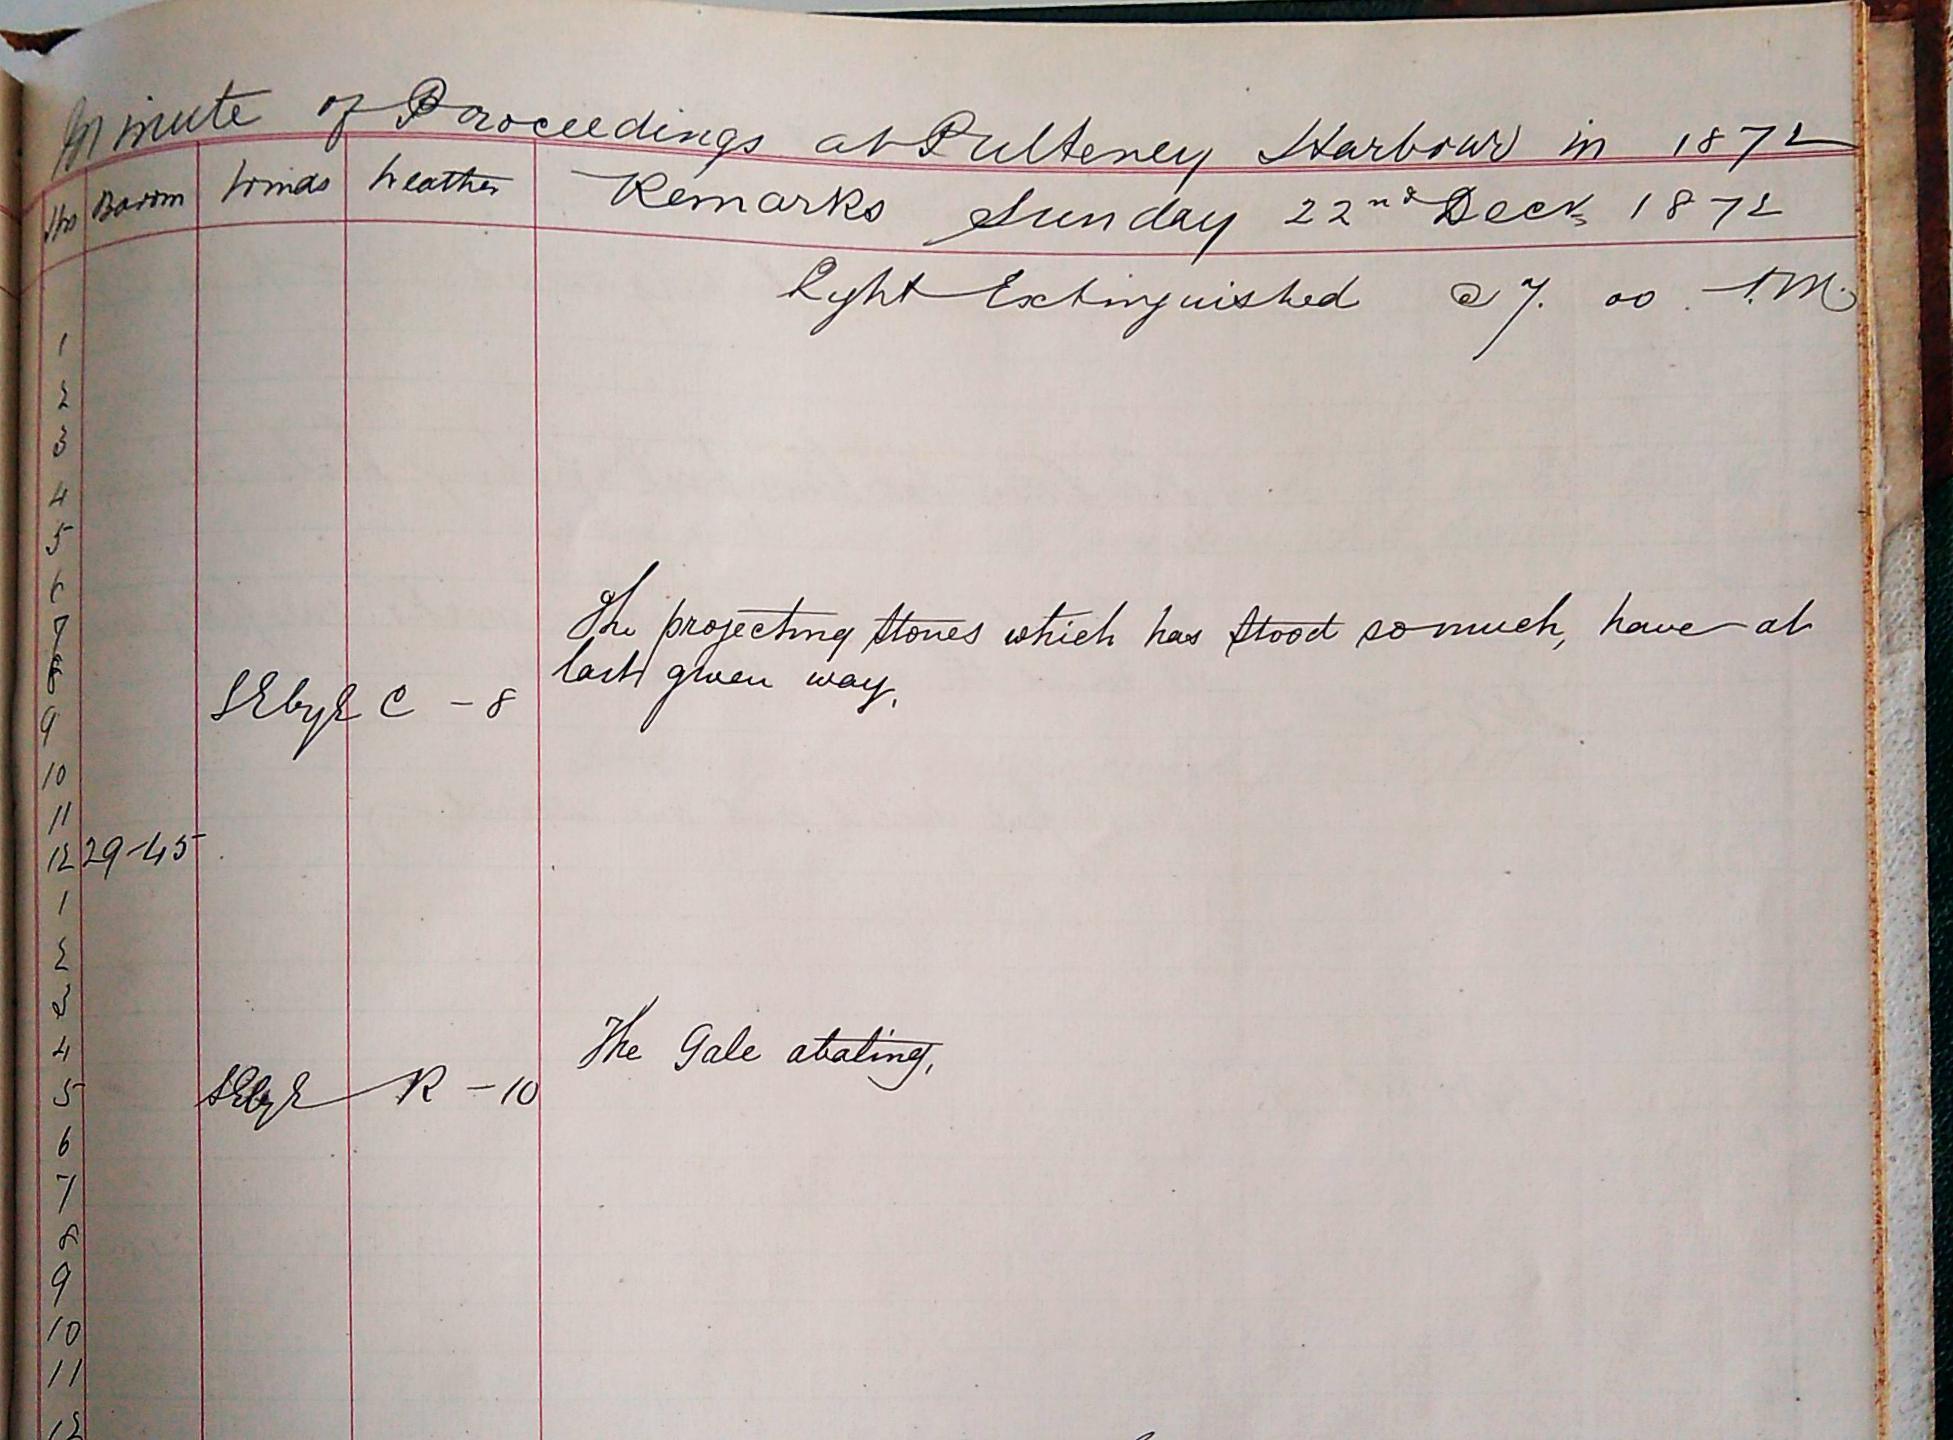 Minute of Proceedings at Pulteney Harbour in 1872
Hrs Barom Winds Weather Remarks Sunday 22nd Decr 1872
Light Extinguished @ 7. 00 A.M.
1
2
3
4
5
6
7 The projecting stones which has stood so much, have at
8 last given way.
9 SEbyE C - 8
10
11
12 29-45
1
2
3
4 The Gale abating.
5 SEbyE R - 10
6
7
8
9
10
11
12